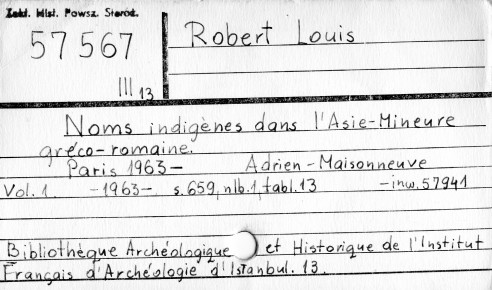 Zakł. Hist. Powsz. Staroż.
57 567
III 13
Robert Louis
Noms indigènes dans l'Asie-Mineure
gréco-romaine.
Paris 1963- Adrien-Maisonneuve
Vol. 1 -1963- s. 659, nlb. 1, tabl. 13 -inw. 57941
Bibliothèque Archéologique et Historique de l'Institut
Français d'Archéologie d'Istanbul. 13